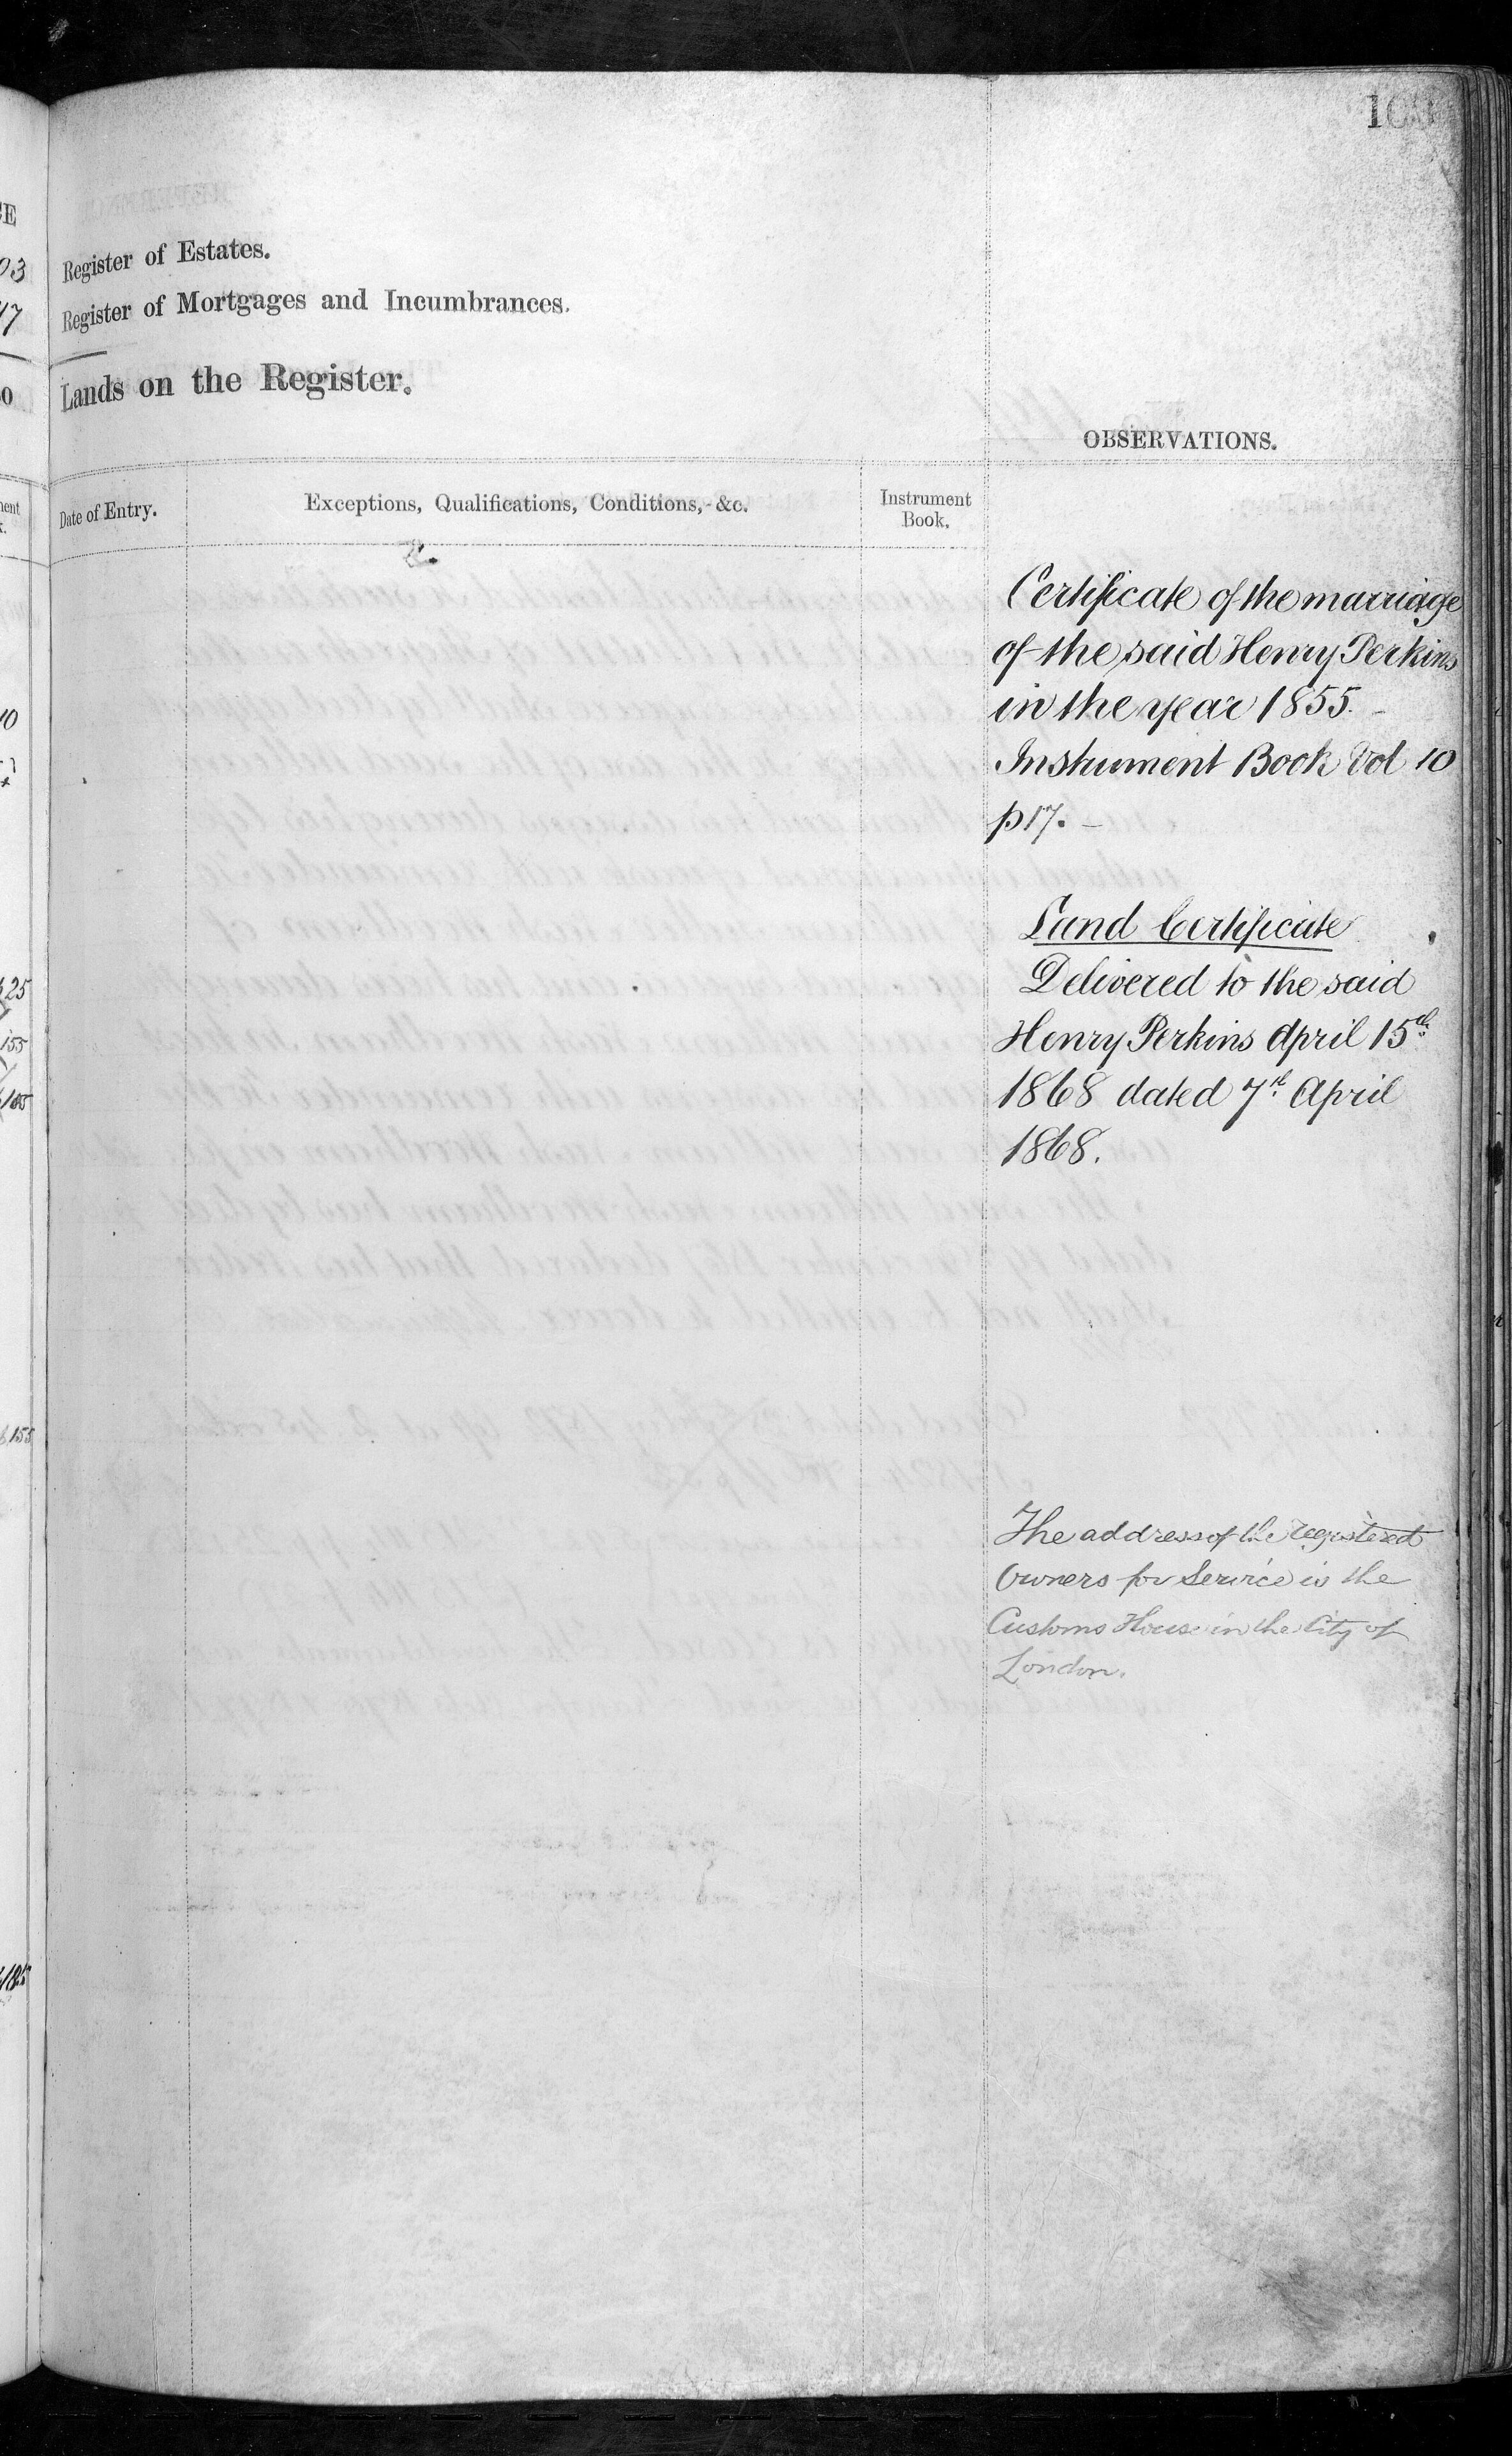 Register of Estates.
Register of Mortgages and Incumbrances.
Lands on the Register.
OBSERVATIONS.
Date of Entry.
Exceptions, Qualifications, Conditions, &c.
Instrument
Book.
Certificate of the marriage
of the said Henry Perkins
in the year 1855. -
Instrument Book Vol 10
p 17. -
Land Certificate
Delivered to the said
Henry Perkins April 15th
1868 dated 7th April
1868.
The address of the registered
Owners for Service is the
Customs House in the City of
London.
03
47
10
25
155
105
155
185